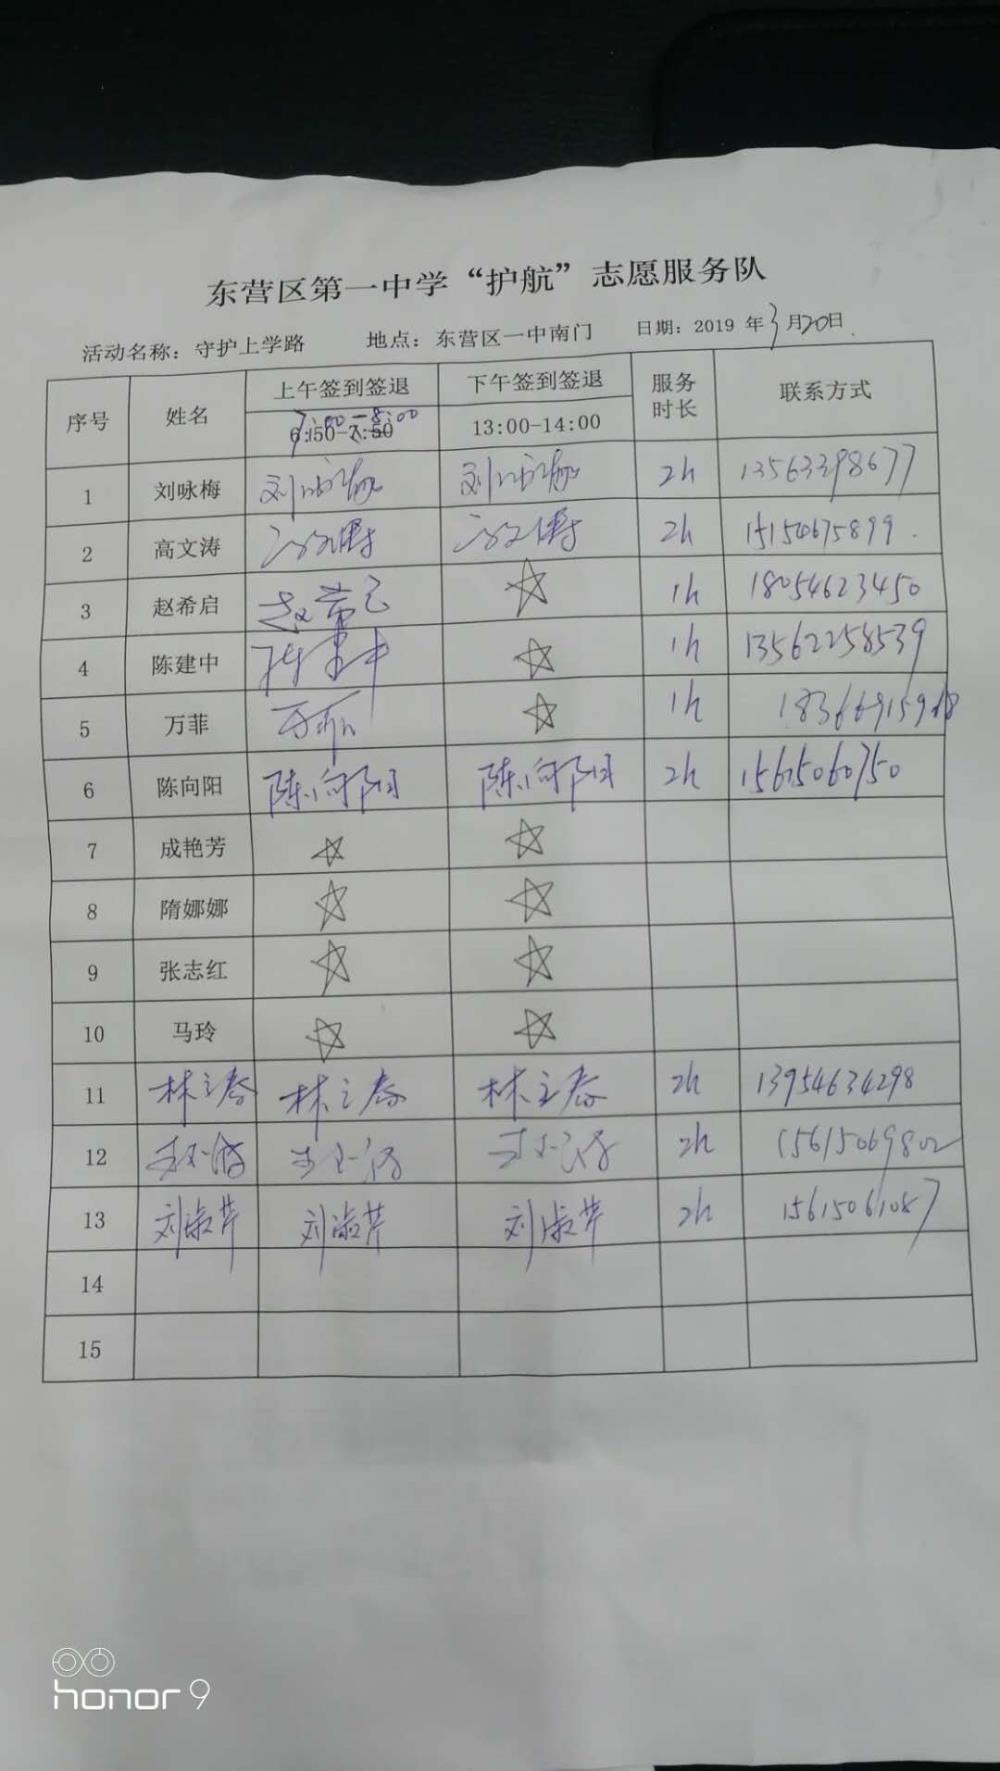 东营区第一中学“护航”志愿服务队
活动名称：守护上学路 地点：东营区一中南门 日期：2019 年3月20日
序号 姓名 上午签到签退 下午签到签退 服务时长 联系方式
7:00-8:00
6:50-7:50 13:00-14:00
1 刘咏梅 刘咏梅 刘咏梅 2h 13563398677
2 高文涛 2h 15154675899
3 赵希启 1h 18054623450
4 陈建中 陈建中 1h 13562258539
5 万菲 万菲 1h
6 陈向阳 陈向阳 陈向阳 2h 15615060750
7 成艳芳
8 隋娜娜
9 张志红
10 马玲
11 林立春 林立春 林立春 2h 13954634298
12 2h 15615069802
13 刘淑芹 刘淑芹 刘淑芹 2h 15615061087
14
15
honor 9